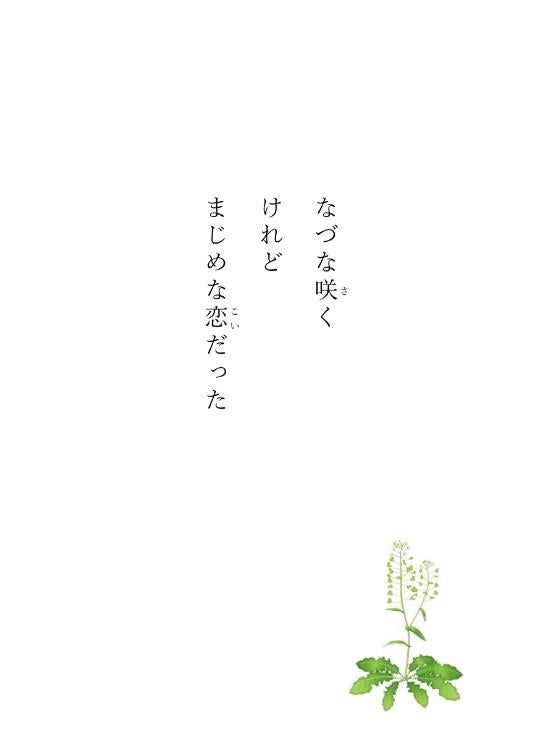 なづな咲く
けれど
まじめな恋だった